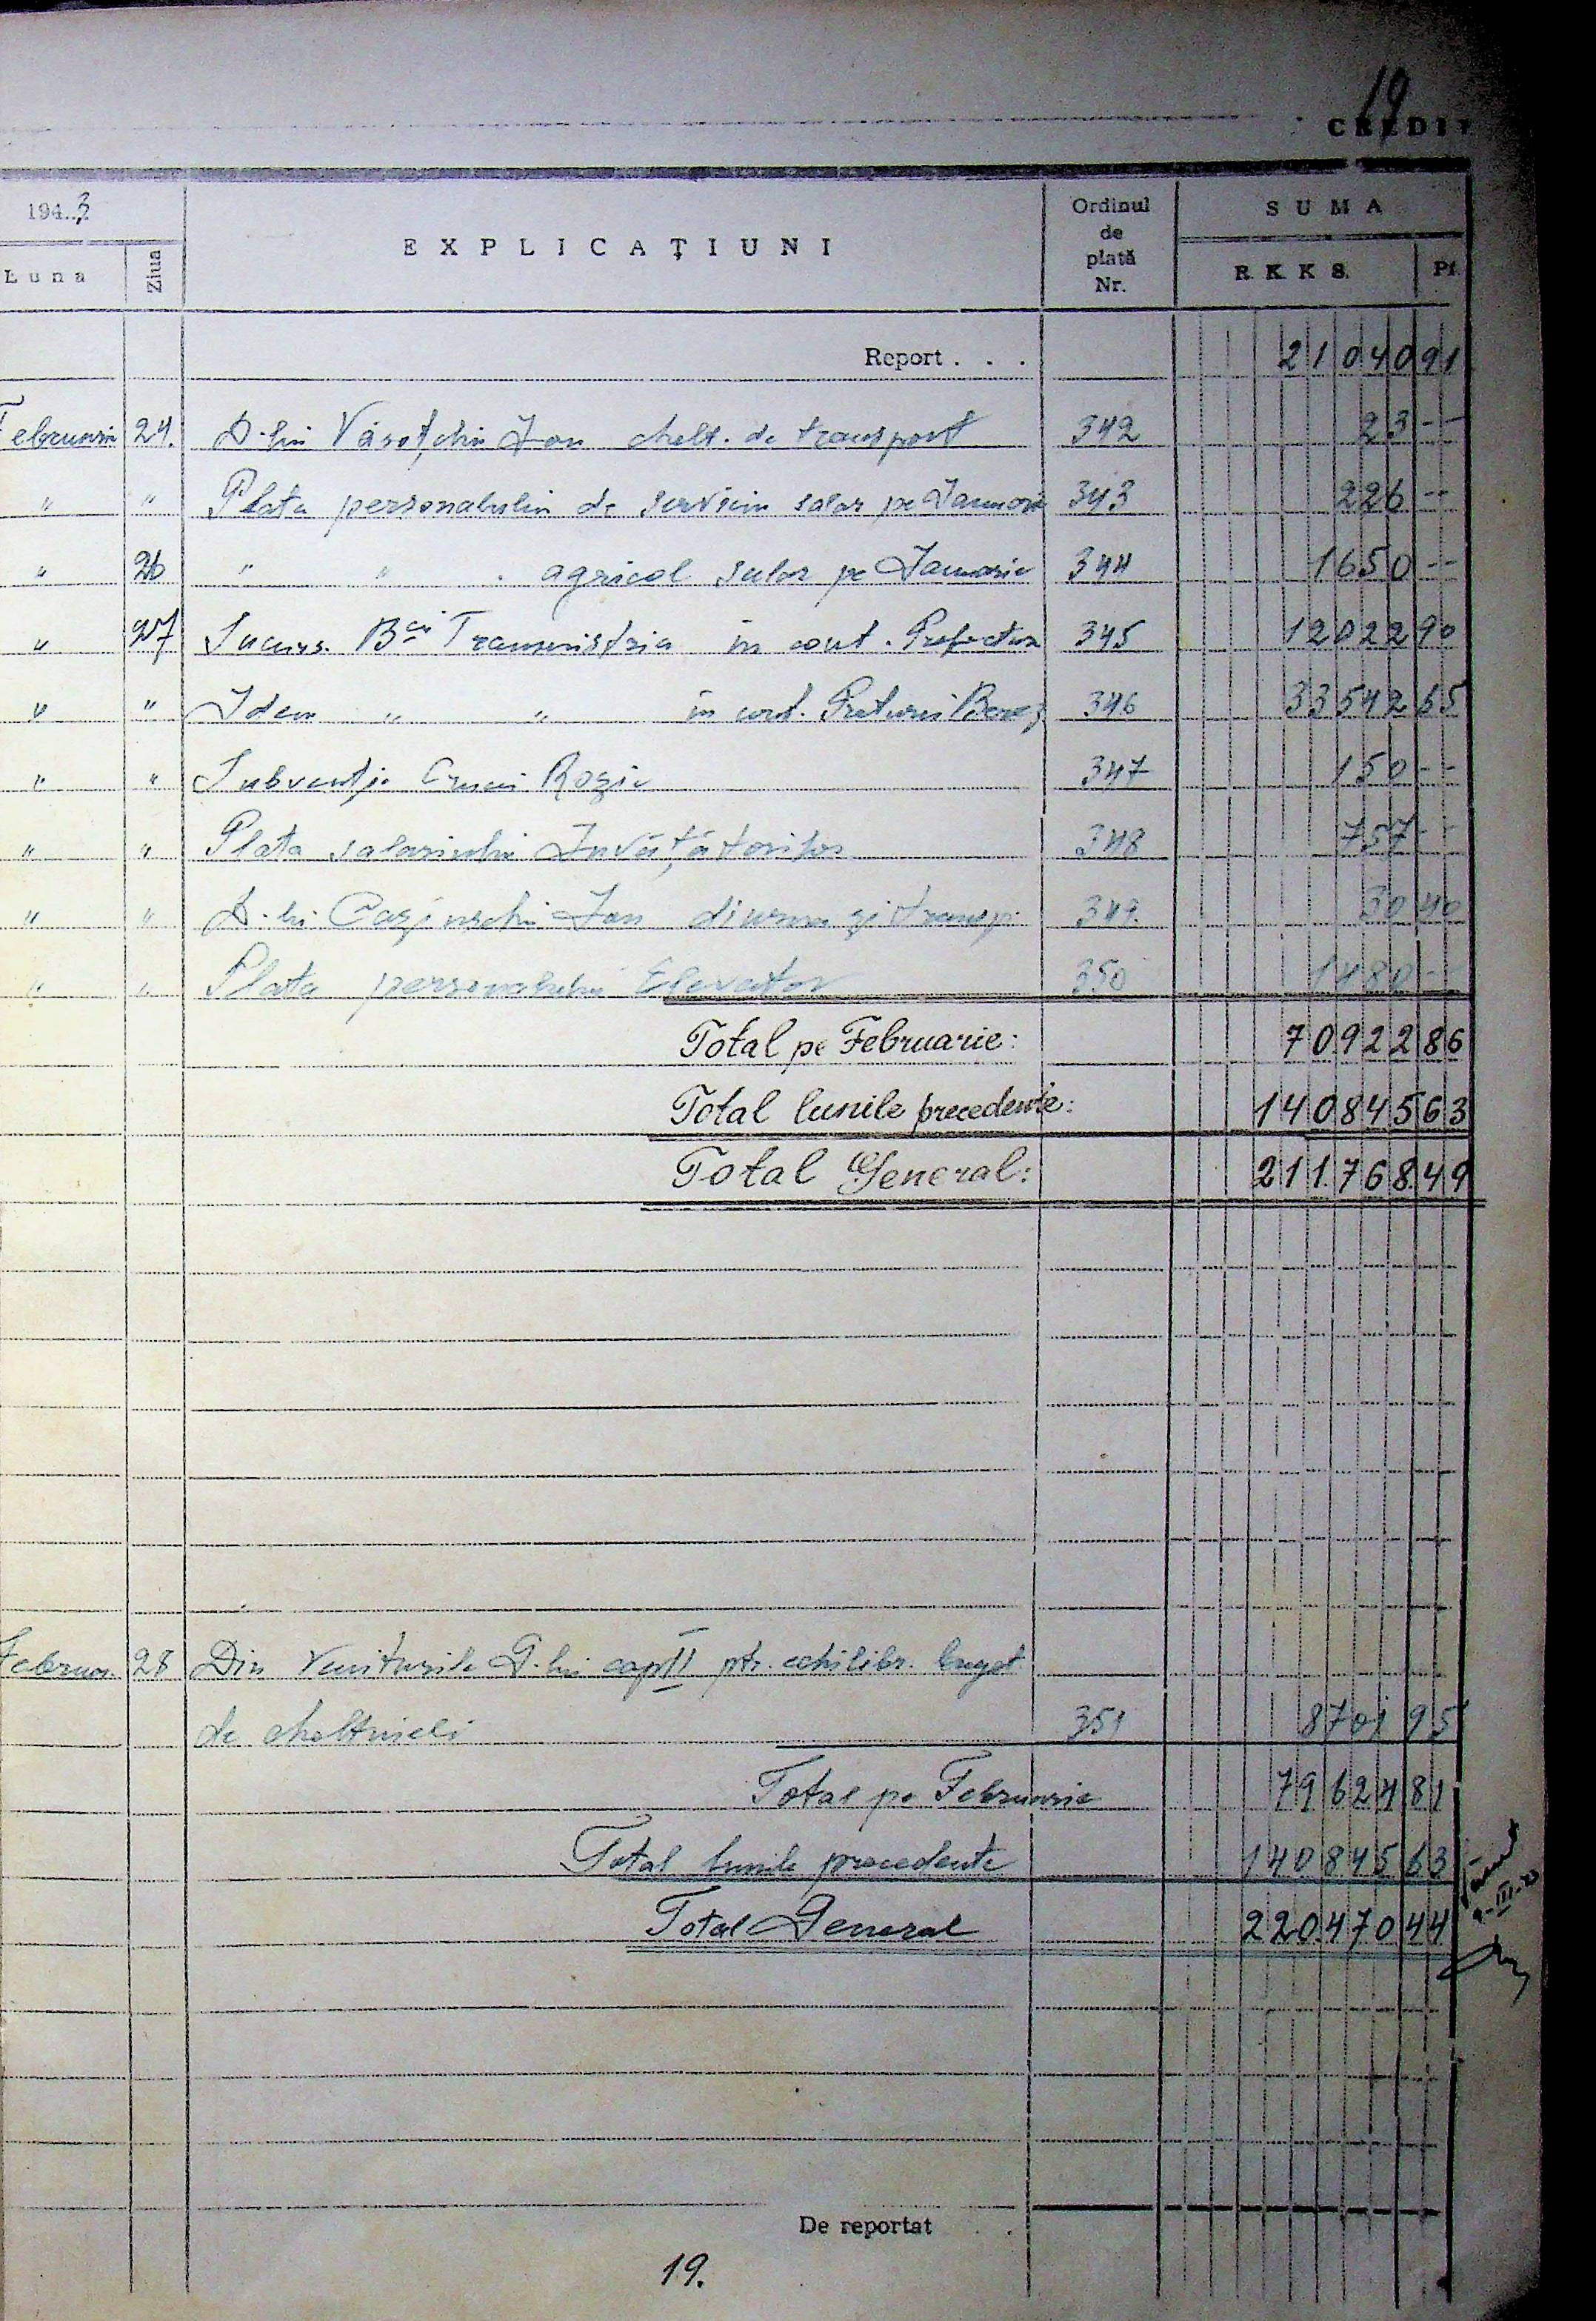 19
CREDIT
194..3
EXPLICAŢIUNI
Ordinul de plată Nr.
SUMA
Luna
Ziua
R. K. K. S.
Pf.
Report . . . 21040 91
Februarie 24. D-lui Ion chelt. de transport 342 23 --
" " Plata personalului de serviciu salar pe Ianuarie 343 226 --
" 26 " " . agricol salar pe Ianuarie 344 1650 --
" 27 Sucurs. Bcii Transnistria în cont. Prefectura 345 12022 90
" " Idem " " în cont. Preturii Berez 346 33542 65
" " Subvenţie Crucii Roşie 347 150 --
" " Plata salariului Învăţătorilor 348 757 --
" " D-lui Ion diurna şi transp. 349. 30 40
" " Plata personalului Elevator 350 1480 --
Total pe Februarie: 70.922 86
Total lunile precedente: 140845 63
Total General: 211.768. 49
Februar. 28 Din veniturile G-lui cap II ptr. echilibr. buget
de cheltuieli 351 8701 95
Total pe Februarie 79624 81
Total lunile precedente 140845 63
Total General 220.470 44
De reportat
19.